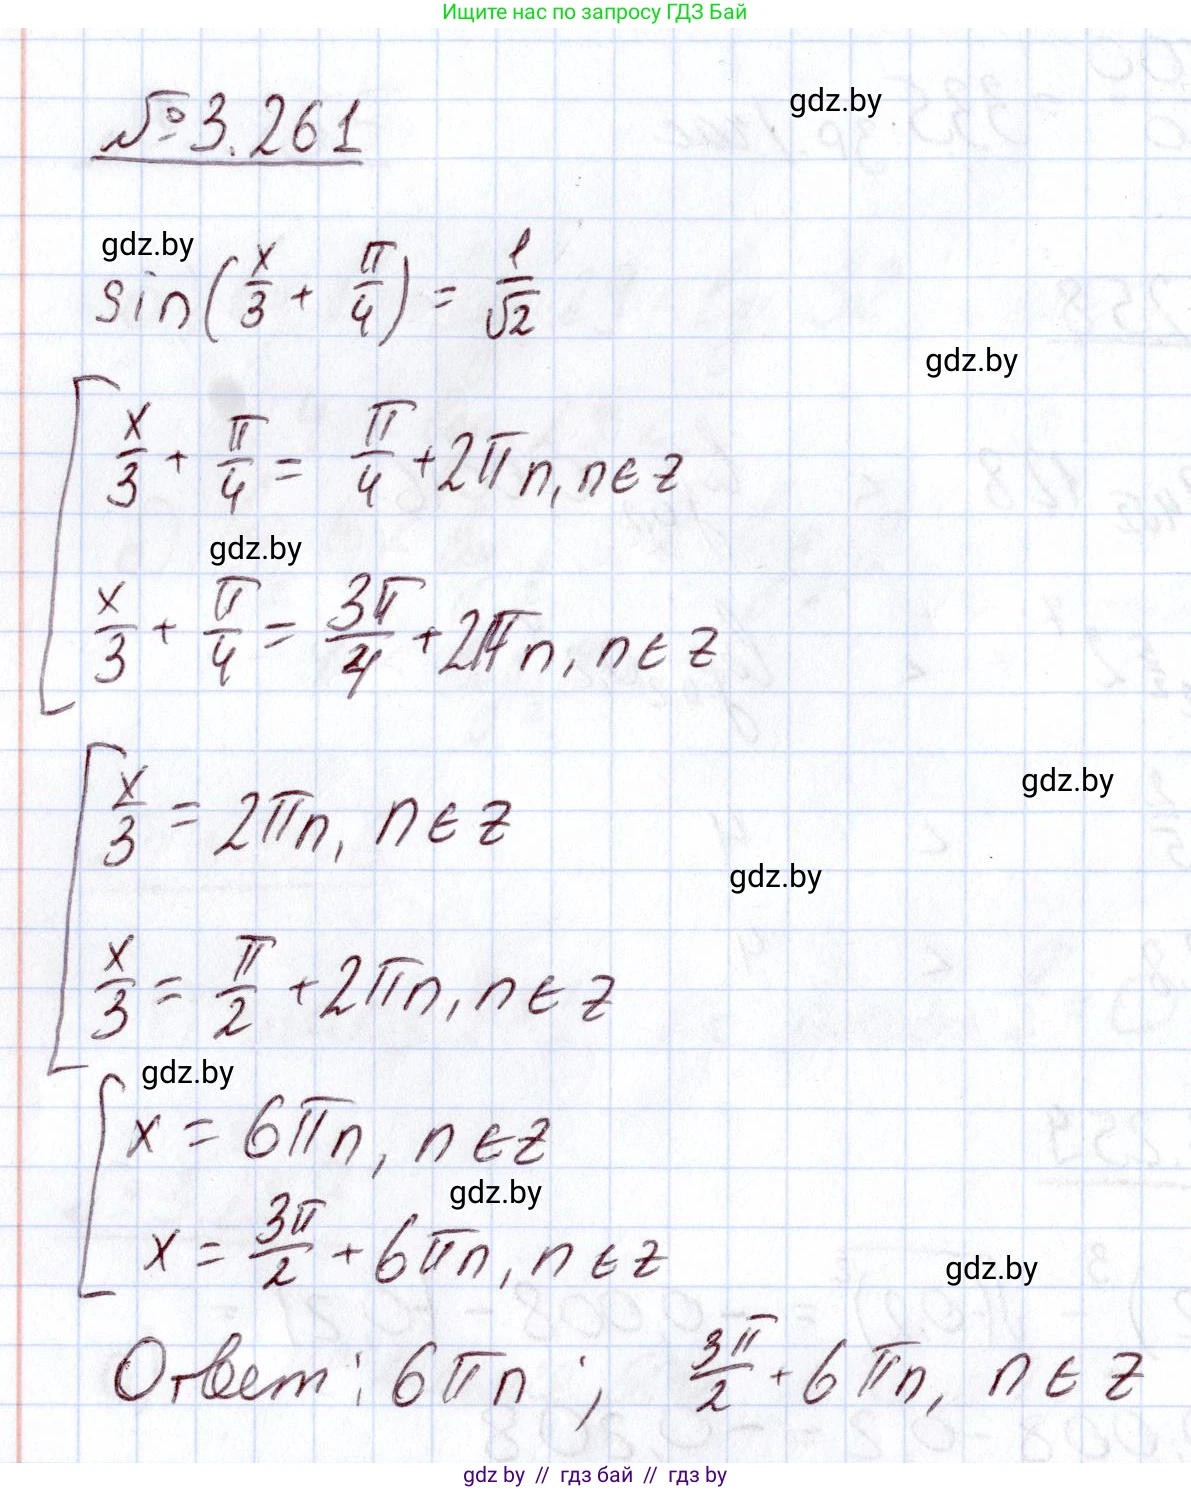 Ищите нас по запросу ГДЗ Бай
№ 3.261
gdz.by
gdz.by
sin(x/3 + π/4) = 1/√2
gdz.by
x/3 + π/4 = π/4 + 2πn, n ∈ z
gdz.by
x/3 + π/4 = 3π/4 + 2πn, n ∈ z
gdz.by
x/3 = 2πn, n ∈ z
gdz.by
x/3 = π/2 + 2πn, n ∈ z
gdz.by
x = 6πn, n ∈ z
gdz.by
x = 3π/2 + 6πn, n ∈ z
gdz.by
Ответ: 6πn; 3π/2 + 6πn, n ∈ z
gdz by // гдз бай // гдз by